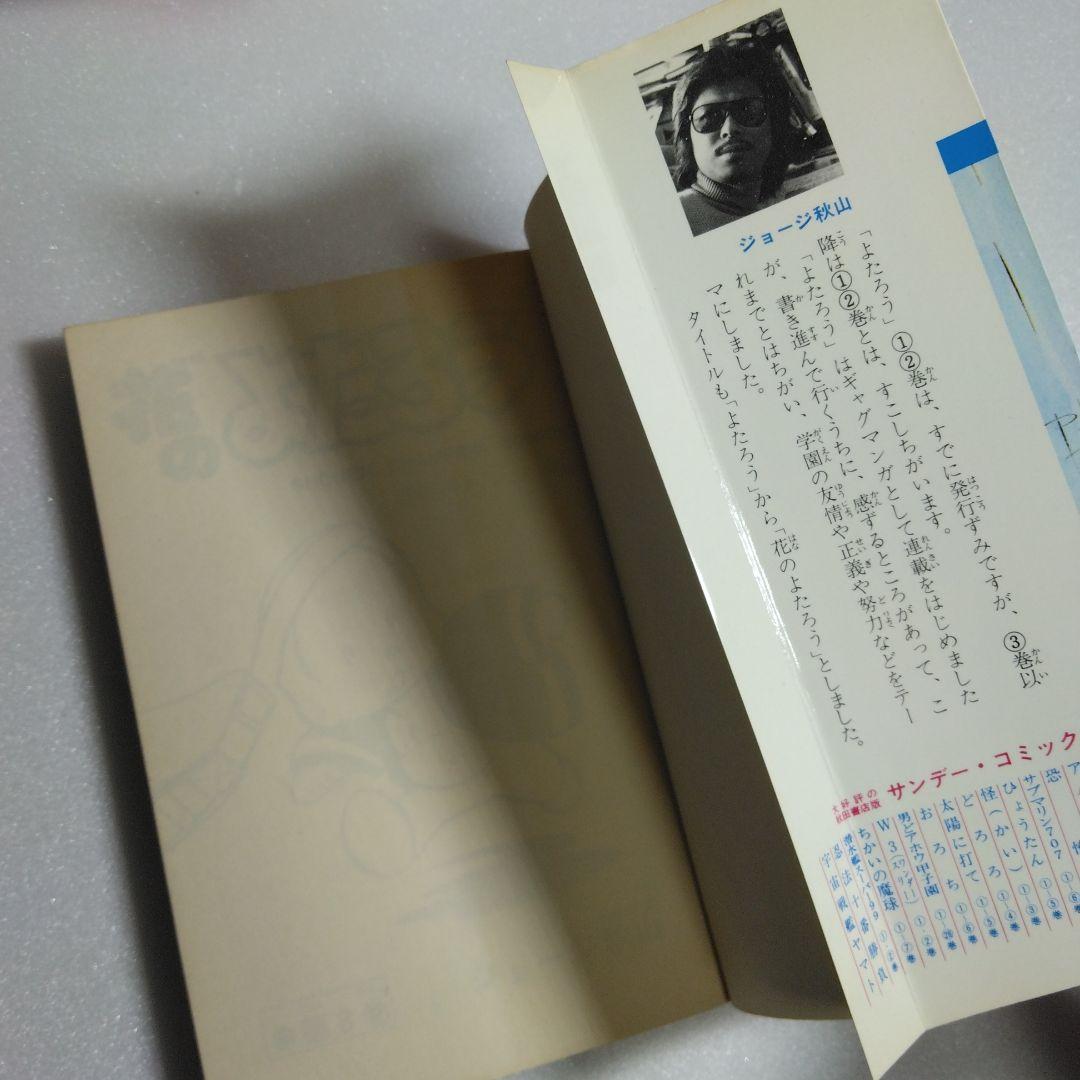 ジョージ秋山
「よたろう」①②巻は、すでに発行ずみですが、③巻以
降は①②巻とは、すこしちがいます。
「よたろう」はギャグマンガとして連載をはじめました
が、書き進んで行くうちに、感ずるところがあって、こ
れまでとはちがい、学園の友情や正義や努力などをテー
マにしました。
タイトルも「よたろう」から「花のよたろう」としました。
大好評の
秋田書店版
サンデー・コミック
サブマリン707 ①-⑤巻
ひょうたん ①-③巻
怪(かい) ①-④巻
どろろ
太陽に打て
おろち
男どアホウ甲子園
W3(ワンダースリー)
ちかいの魔球
潜水艦スーパー99
忍法十番勝負
宇宙戦艦ヤマト